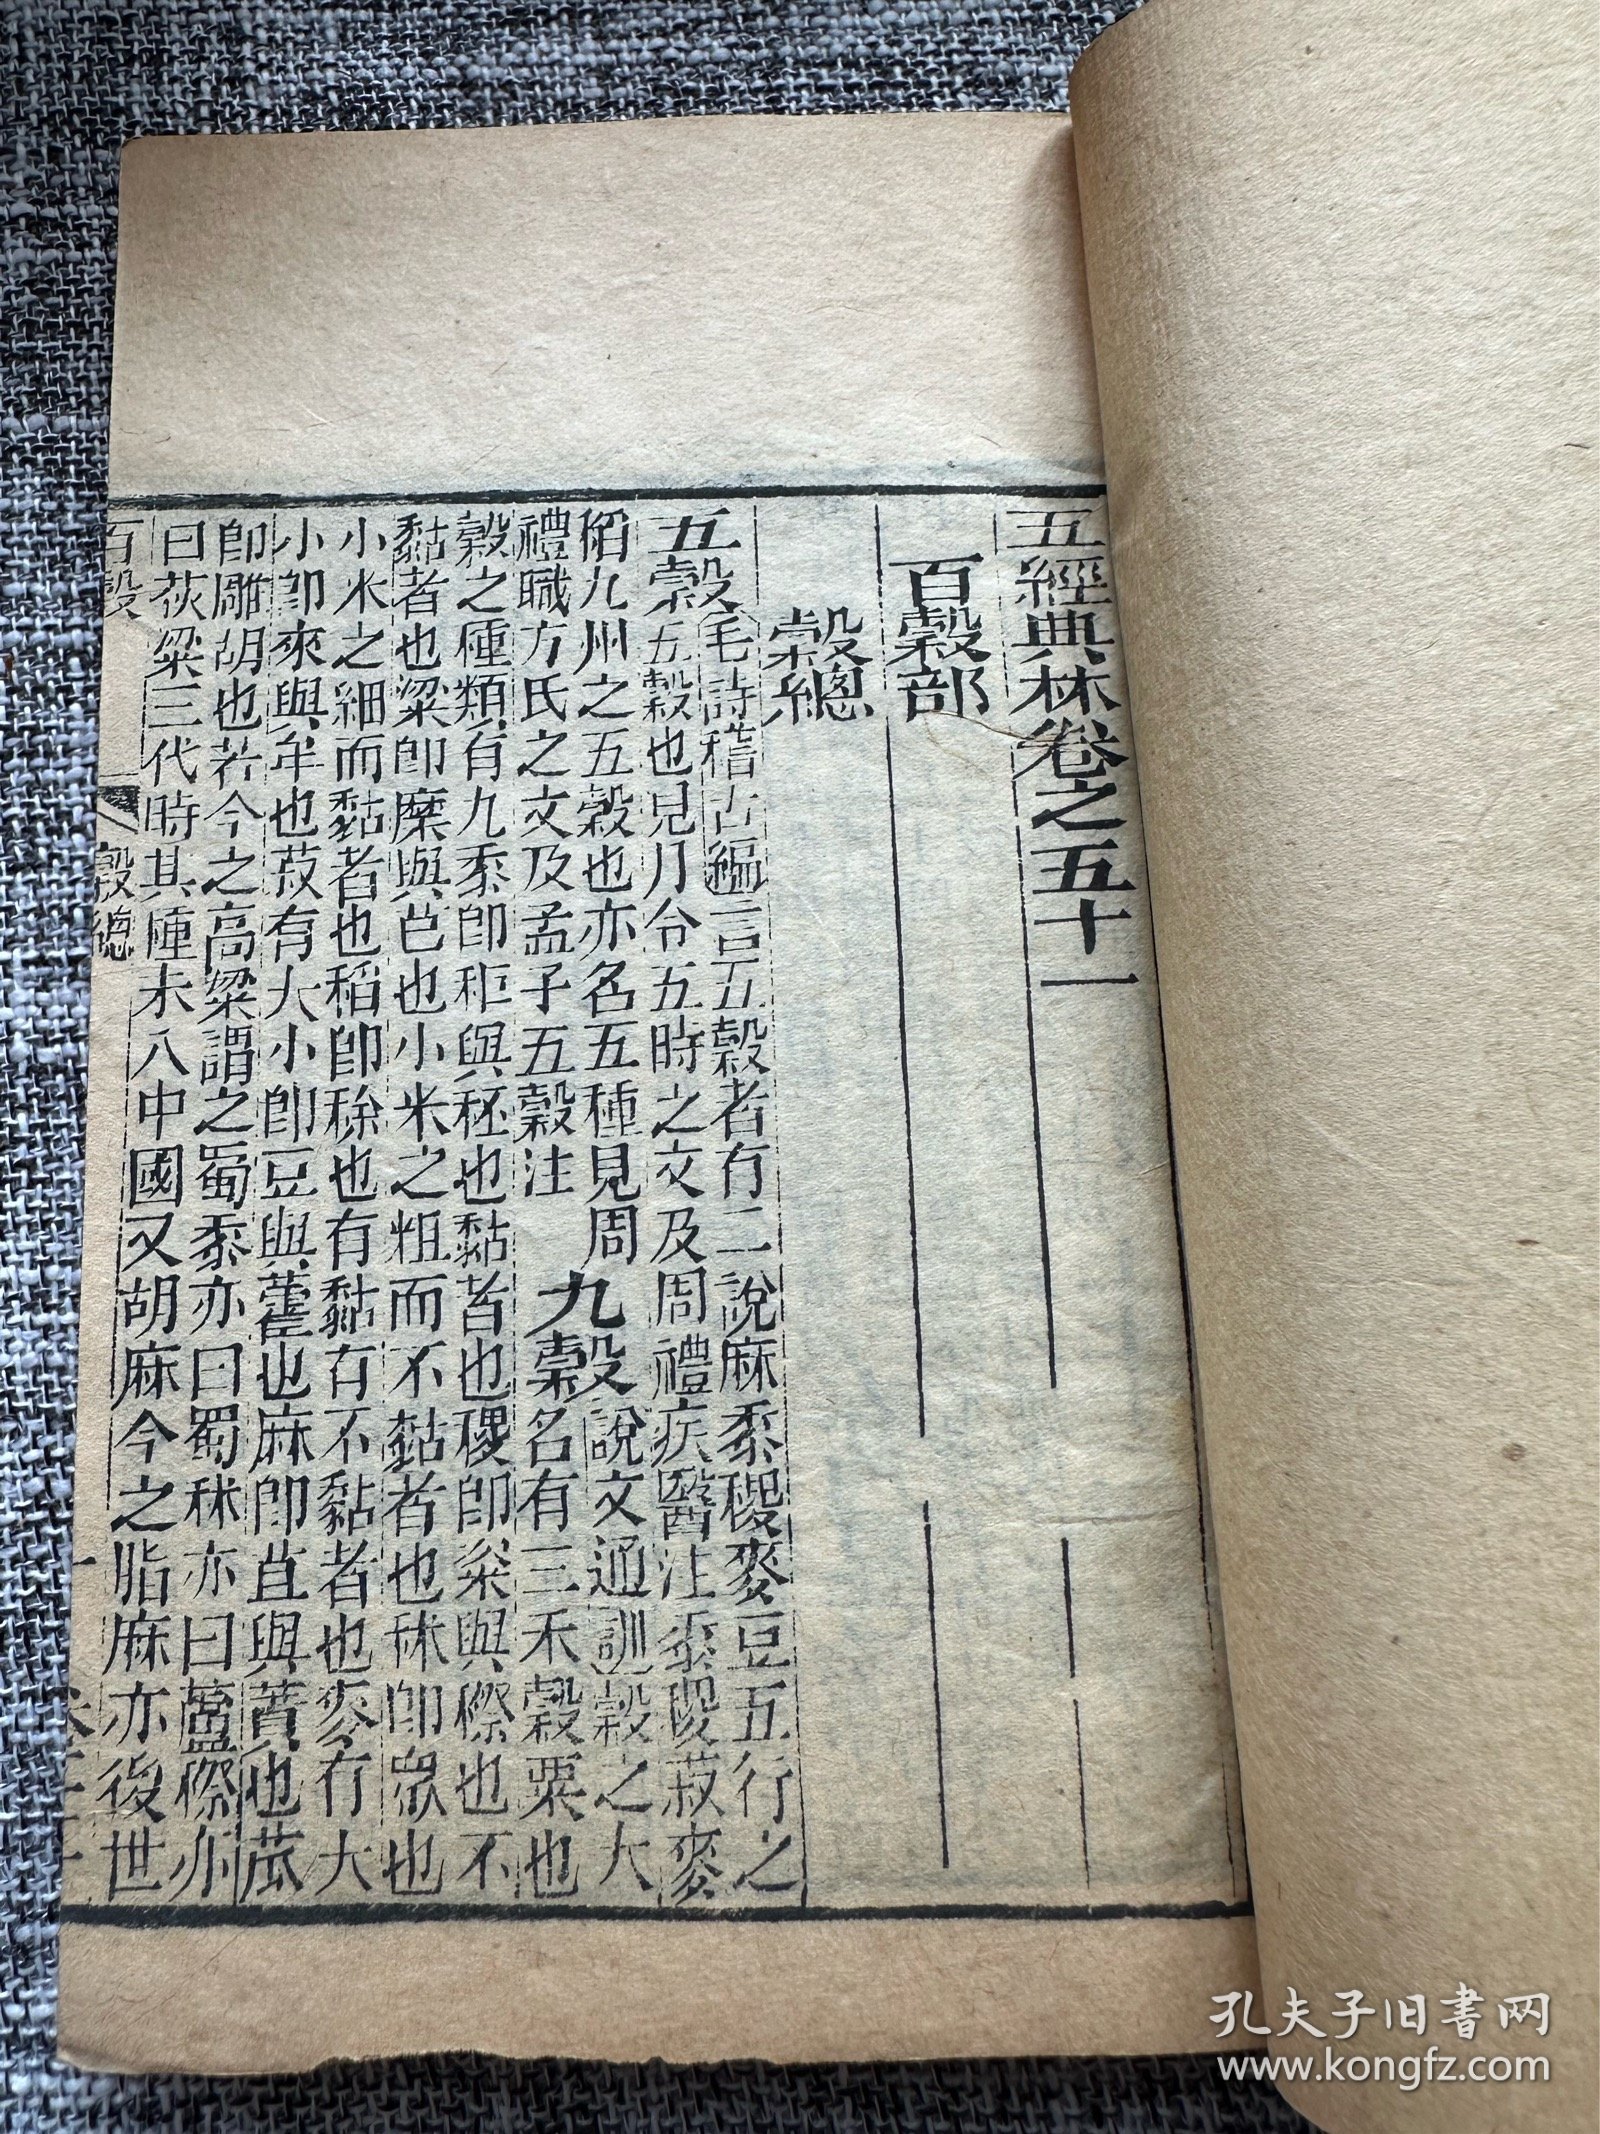 五經典林卷之五十一
百穀部
穀總
五穀 毛詩稽古編言五穀者有二說麻黍稷麥豆五行之
五穀也見月令五時之文及周禮疾醫注黍稷菽麥
稻九州之五穀也亦名五種見周
禮職方氏之文及孟子五穀注
九穀 說文通訓穀之大
名有三禾穀粟也
穀之種類有九黍即秬與秠也黏者也稷即粢與穄也不
黏者也粱即穈與芑也小米之粗而不黏者也秫即眾也
小米之細而黏者也稻即稌也有黏有不黏者也麥有大
小即來與牟也菽有大小即豆與藿也麻即苴與蕡也苽
即雕胡也若今之高粱謂之蜀黍亦曰蜀秫亦曰蘆穄亦
曰荻粱三代時其種未入中國又胡麻今之脂麻亦後世
百穀
穀總
一
卷五十一
孔夫子旧书网
www.kongfz.com